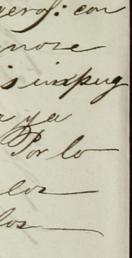 gero: con
nose
s impug
a ya
Por lo
los
los